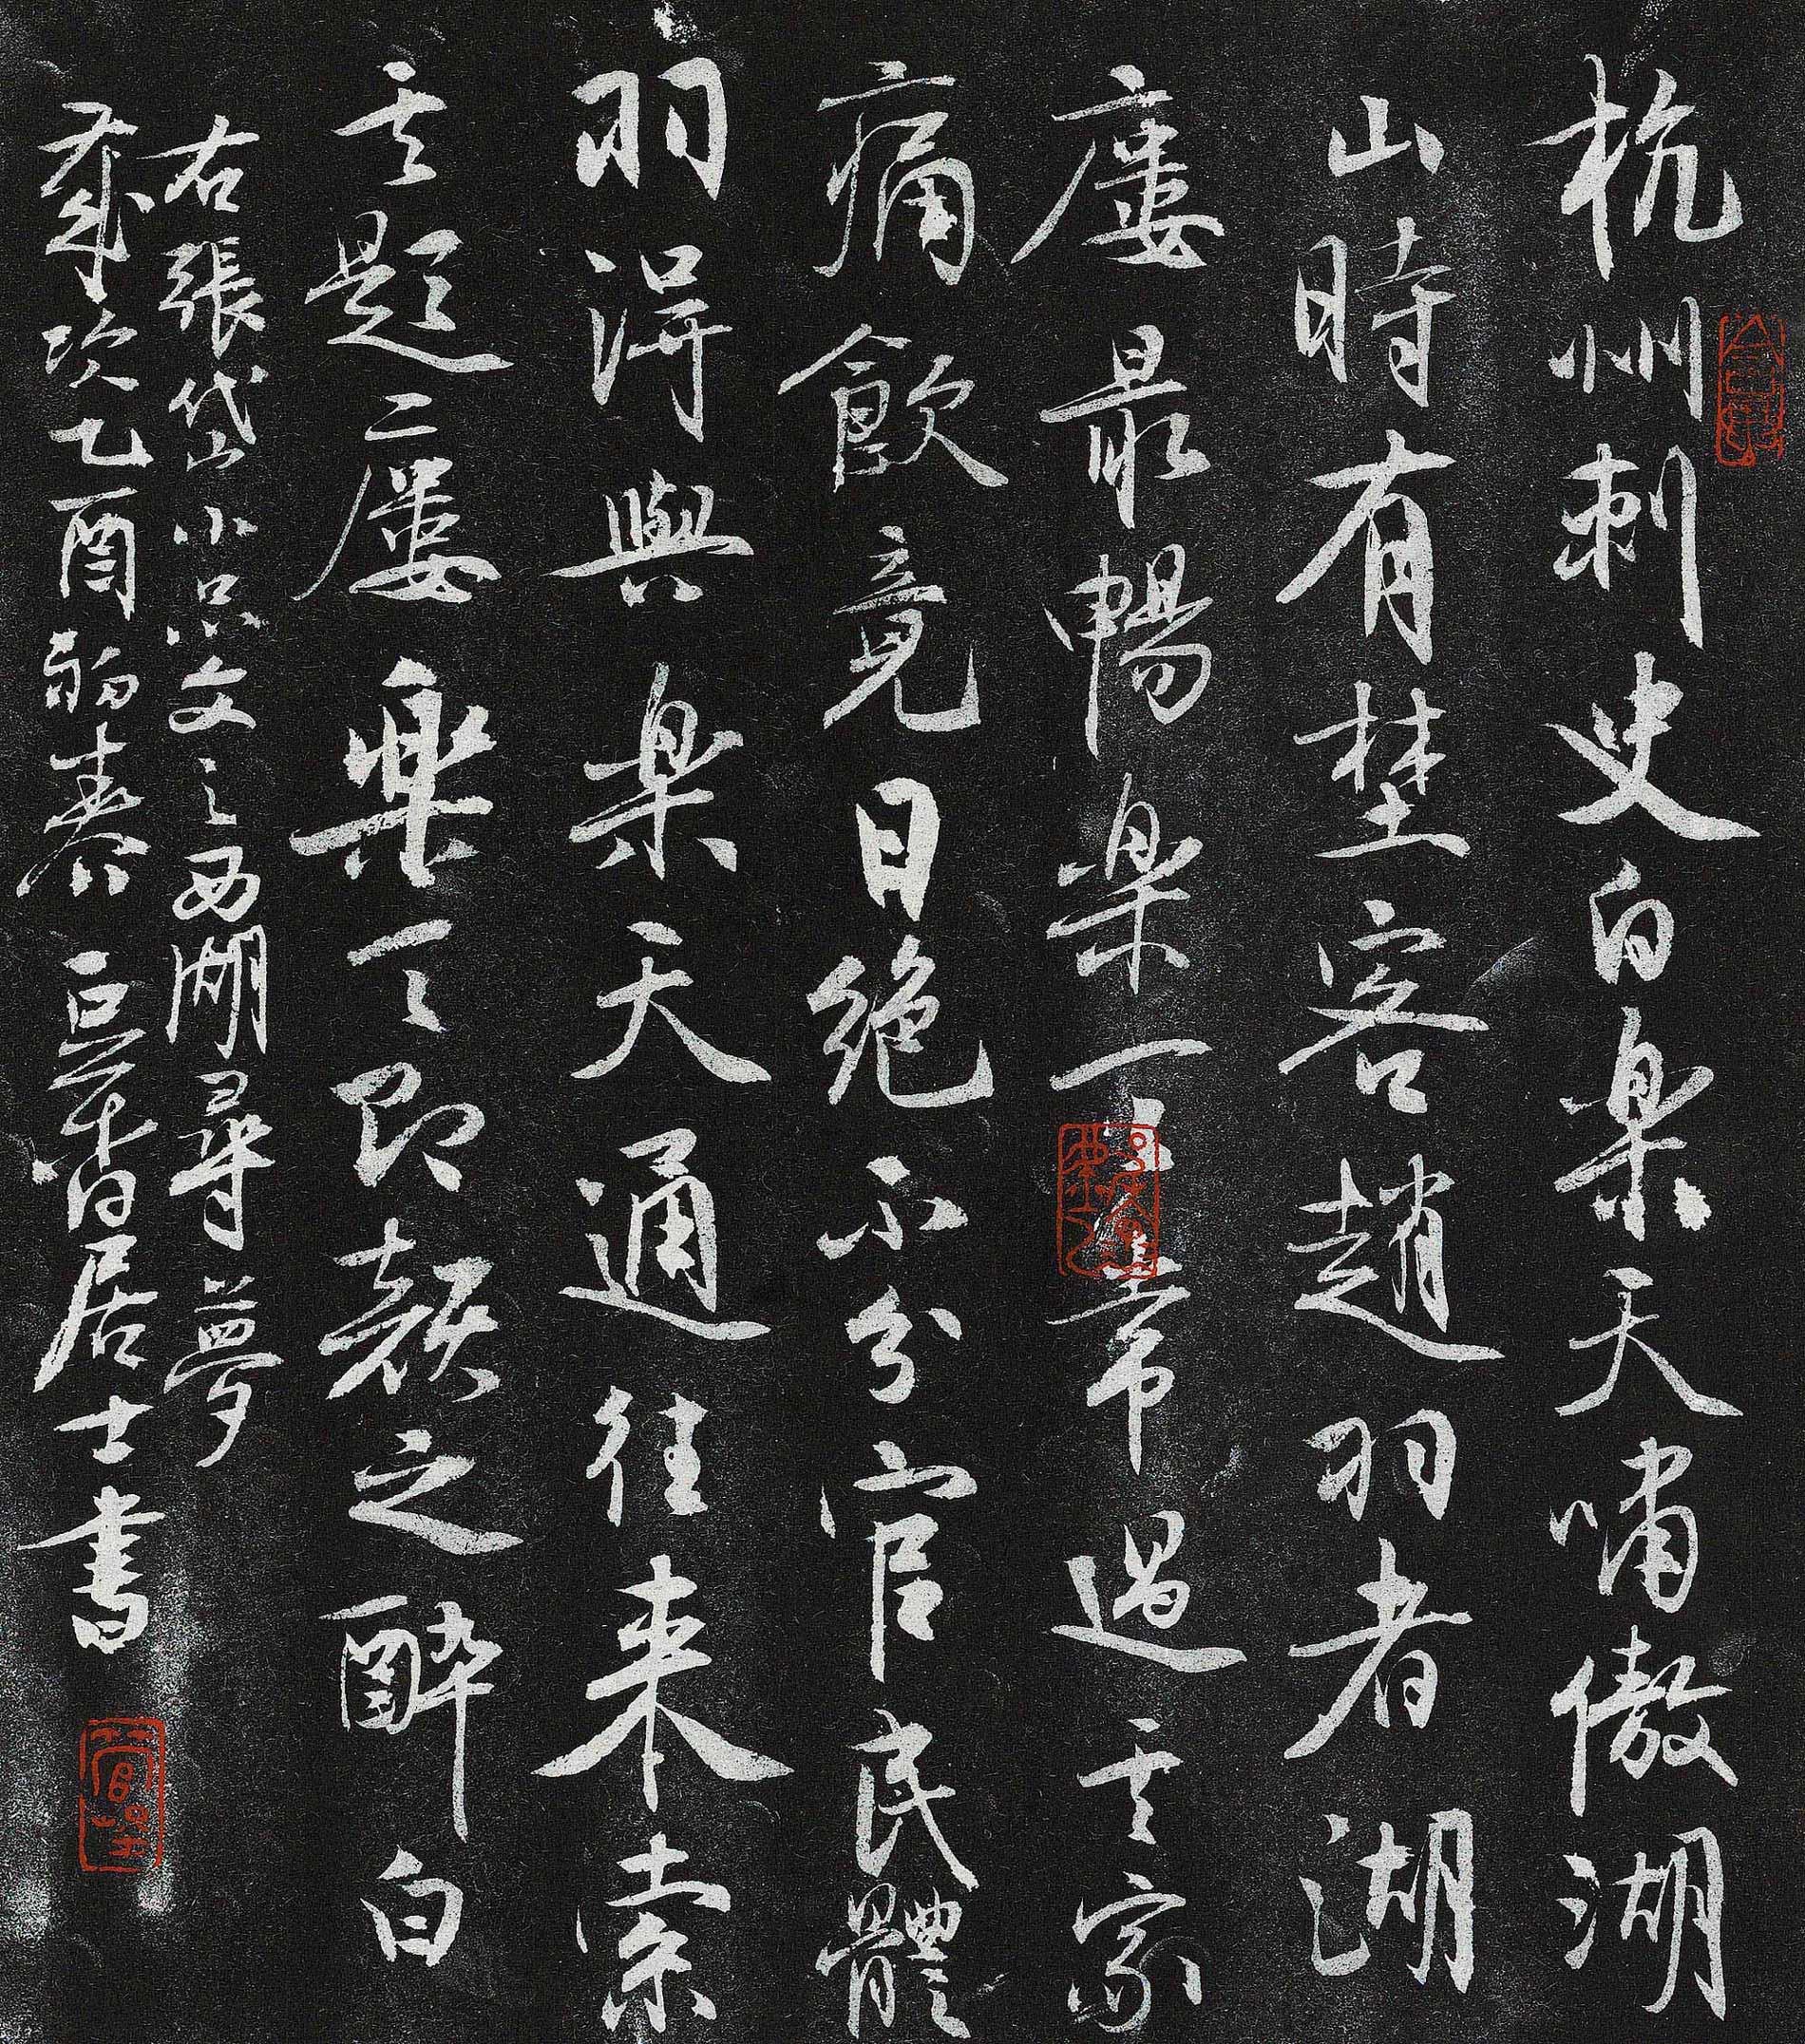 杭州刺史白樂天嘯傲湖
山時有埜客趙羽者湖
廔最暢樂天常過其家
痛飲竟日絕不分官民體
羽得與樂天通往來索
其題廔樂天即顏之醉白
右張岱小品文之西湖尋夢
歲次乙酉初春巨平香居士書